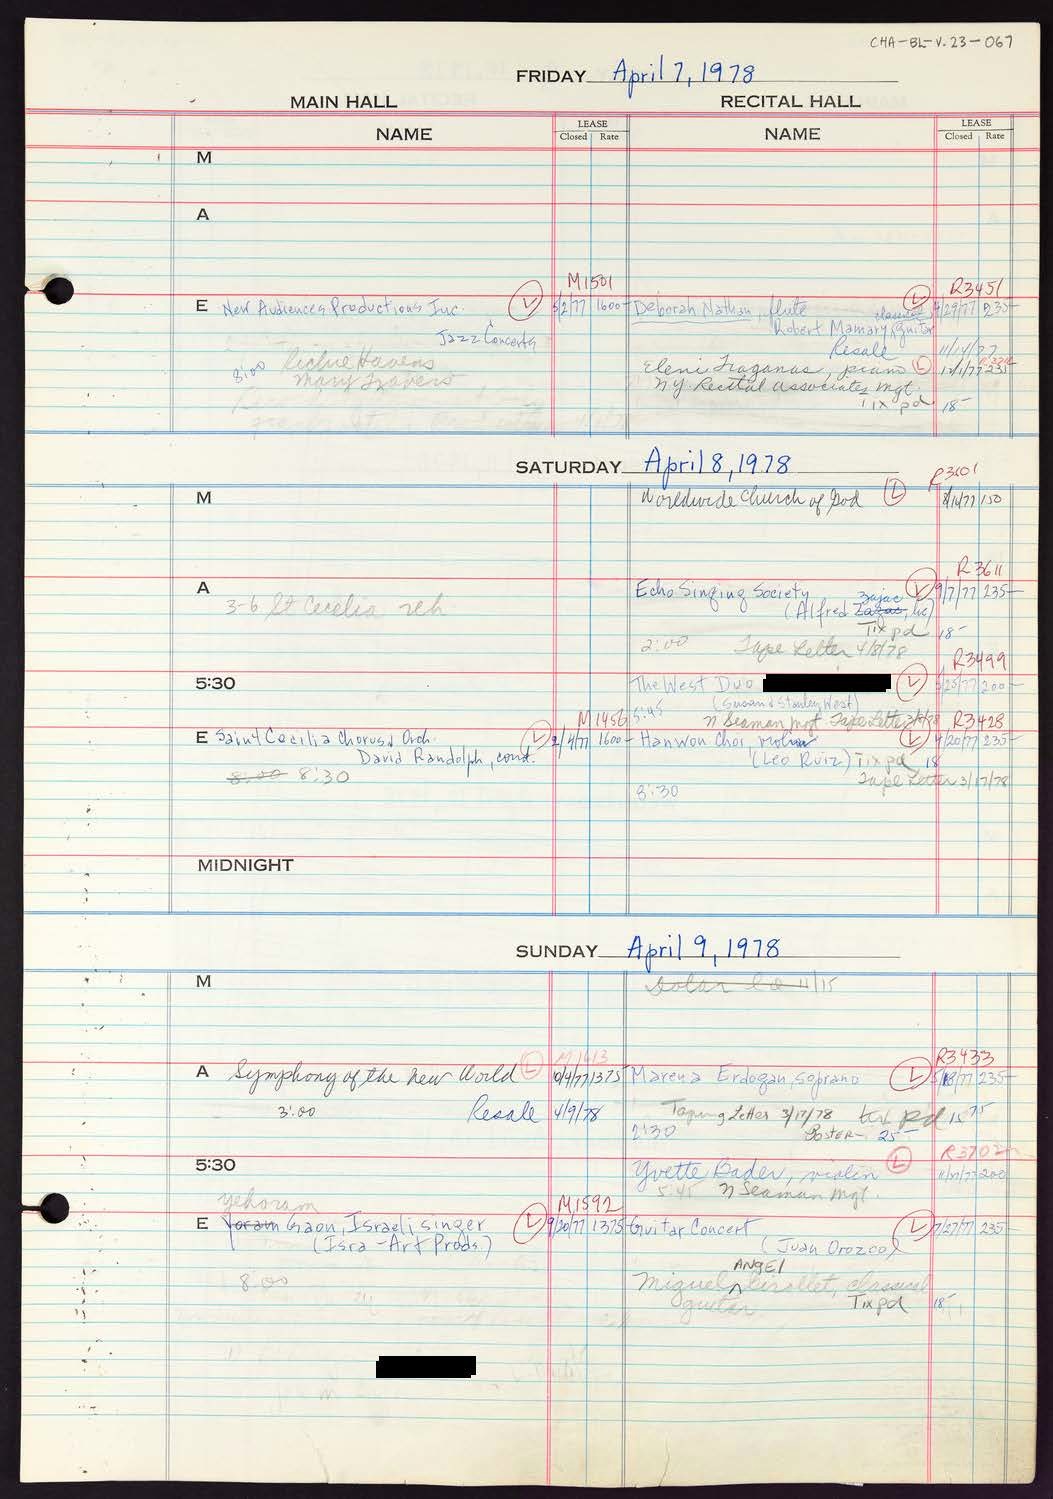 CHA-BL-V.23-067
FRIDAY April 7, 1978
MAIN HALL RECITAL HALL
NAME LEASE Closed Rate NAME LEASE Closed Rate
M
A
M1501 R3451
E New Audiences Productions Inc. L 5/2/77 1600- Deborah Nathan, flute L 4/29/77 235-
classical
Robert Mamary, guitar
Jazz Concerts
Resale 11/14/77
8:00 Richie Havens
Eleni Traganas, piano L 12/1/77 235
Mary Travers
NY Recital Associates Mgt.
Tix pd 18-
SATURDAY April 8, 1978
R3601
M Worldwide Church of God L 8/16/77 150
R3611
A Echo Singing Society L 9/7/77 235-
3-6 St Cecelia reh
Zajac
(Alfred Zazac, lic)
Tix pd 18-
2:00 Tape Letter 4/8/78
R3499
5:30 The West Duo L 5/25/77 200-
(Susan and Stanley West)
M1456 5:45 N Seaman Mgt. Tape Letter R3428
E Saint Cecilia Chorus & Orch. L 2/4/77 1600- Hanwon Choi, violin L 4/20/77 235-
David Randolph, cond. (Leo Ruiz) Tix pd 18
8:00 8:30 Tape Letter 3/17/78
8:30
MIDNIGHT
SUNDAY April 9, 1978
M 11/15
M1613 R3433
A Symphony of the New World L 10/4/77 1375 Marena Erdogan, soprano L 5/18/77 235-
3:00 Resale 4/9/78 Taping Letter 3/17/78 tix pd 15 75
2:30 Poster- 25-
R3702
5:30 Yvette Bader, violin L 11/17/77 200
5:45 N Seaman Mgt.
Yehoram M1592
E Yoram Gaon, Israeli singer L 9/20/77 1375 Guitar Concert L 7/27/77 235-
(Isra-Art Prods.) (Juan Orozco)
ANGEL
8:00 Miguel Girollet, classical
guitar Tix pd 18-